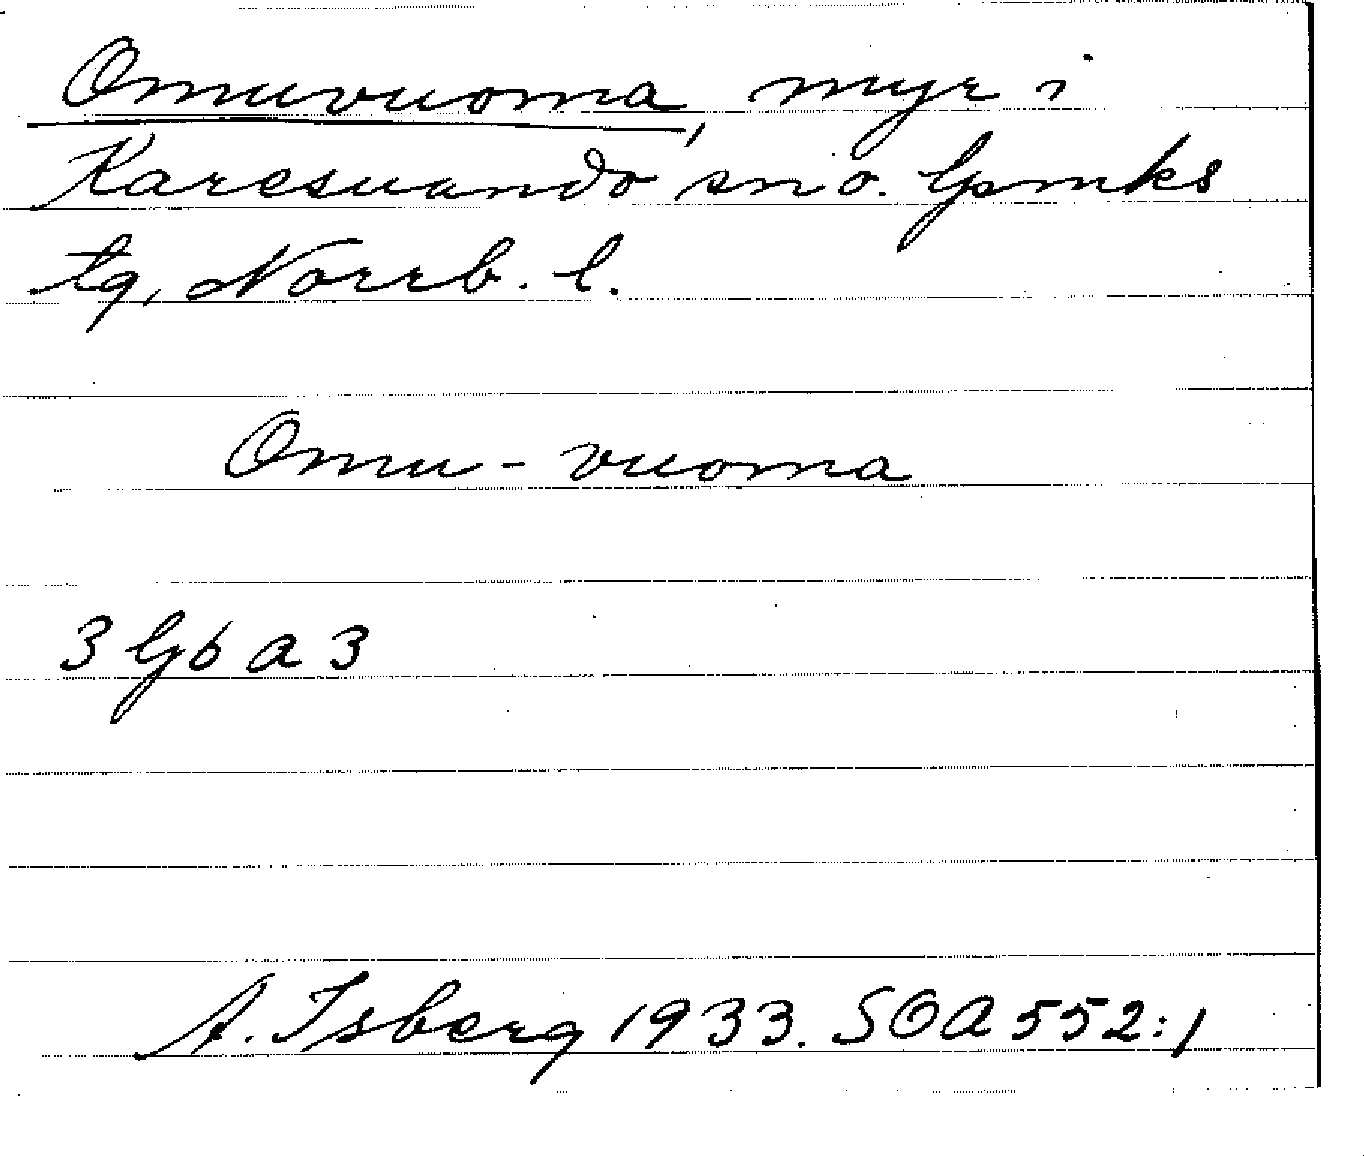 Omuvuoma, myr i
Karesuando sn o. lpmks
tg, Norrb. l.
Omu - vuoma
3 Gb a 3
A. Isberg 1933. SOA 552:1